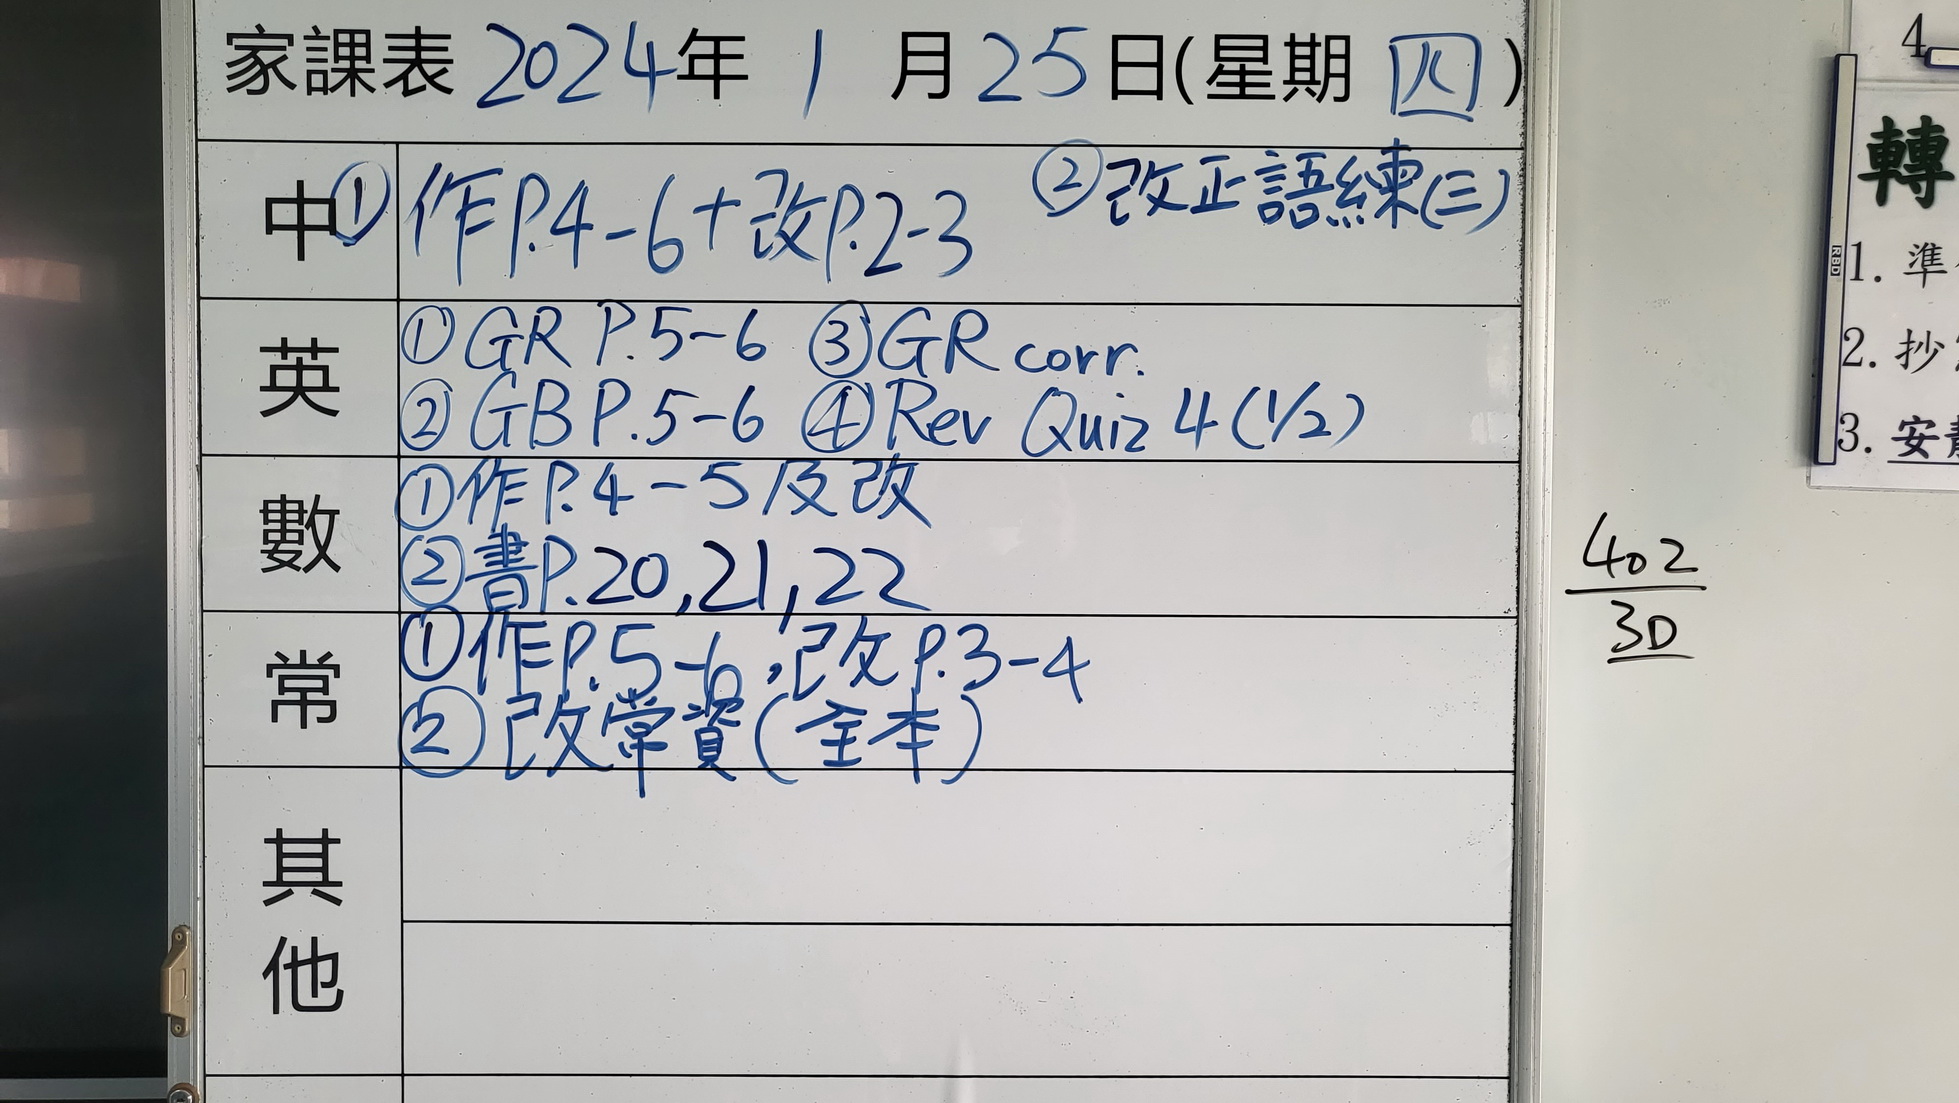 家課表 2024年 1 月25日(星期 四)
中 ① 作P.4-6+改P.2-3 ②改正語練(三)
英
①GR P.5-6 ③GR corr.
②GB P.5-6 ④Rev Quiz 4(1/2)
數
①作P.4-5及改
②書P.20,21,22
常
①作P.5-6,改P.3-4
②改常資(全本)
其他
402
3D
4
轉
1. 準
2. 抄
3. 安
RBD